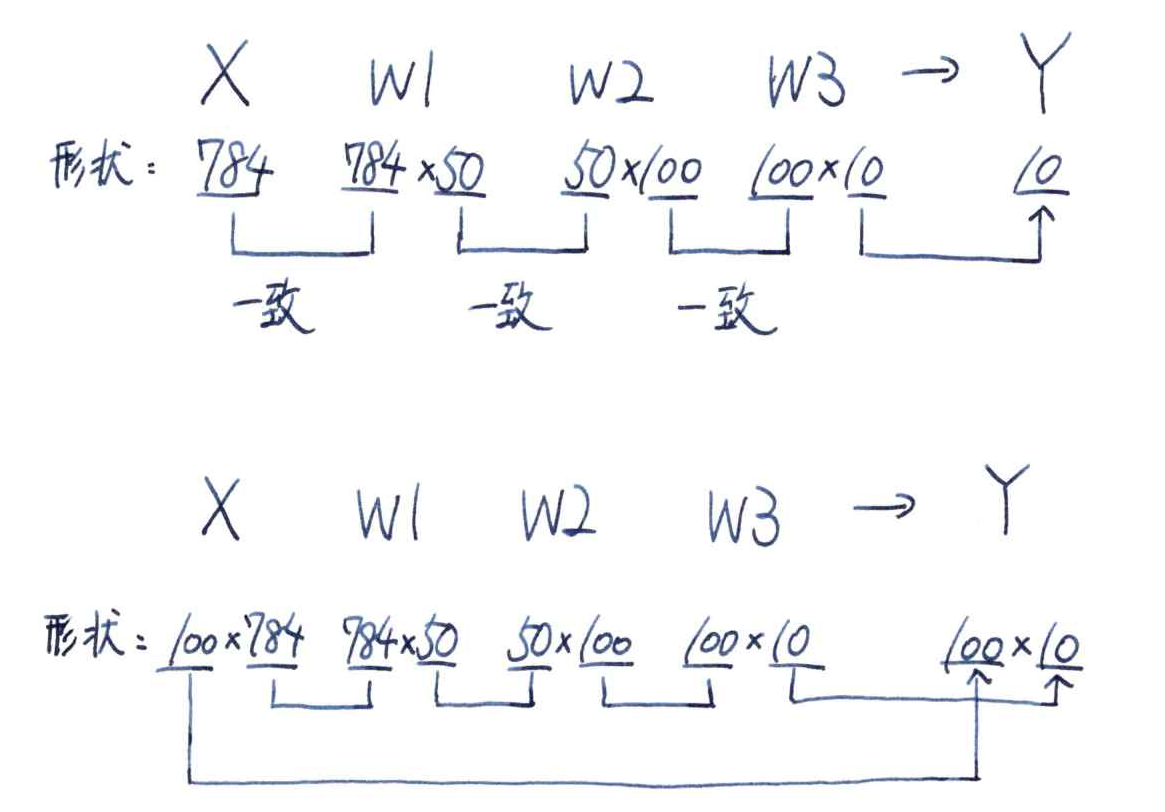 X W1 W2 W3 → Y
形状: 784 784×50 50×100 100×10 10
一致 一致 一致
X W1 W2 W3 → Y
形状: 100×784 784×50 50×100 100×10 100×10